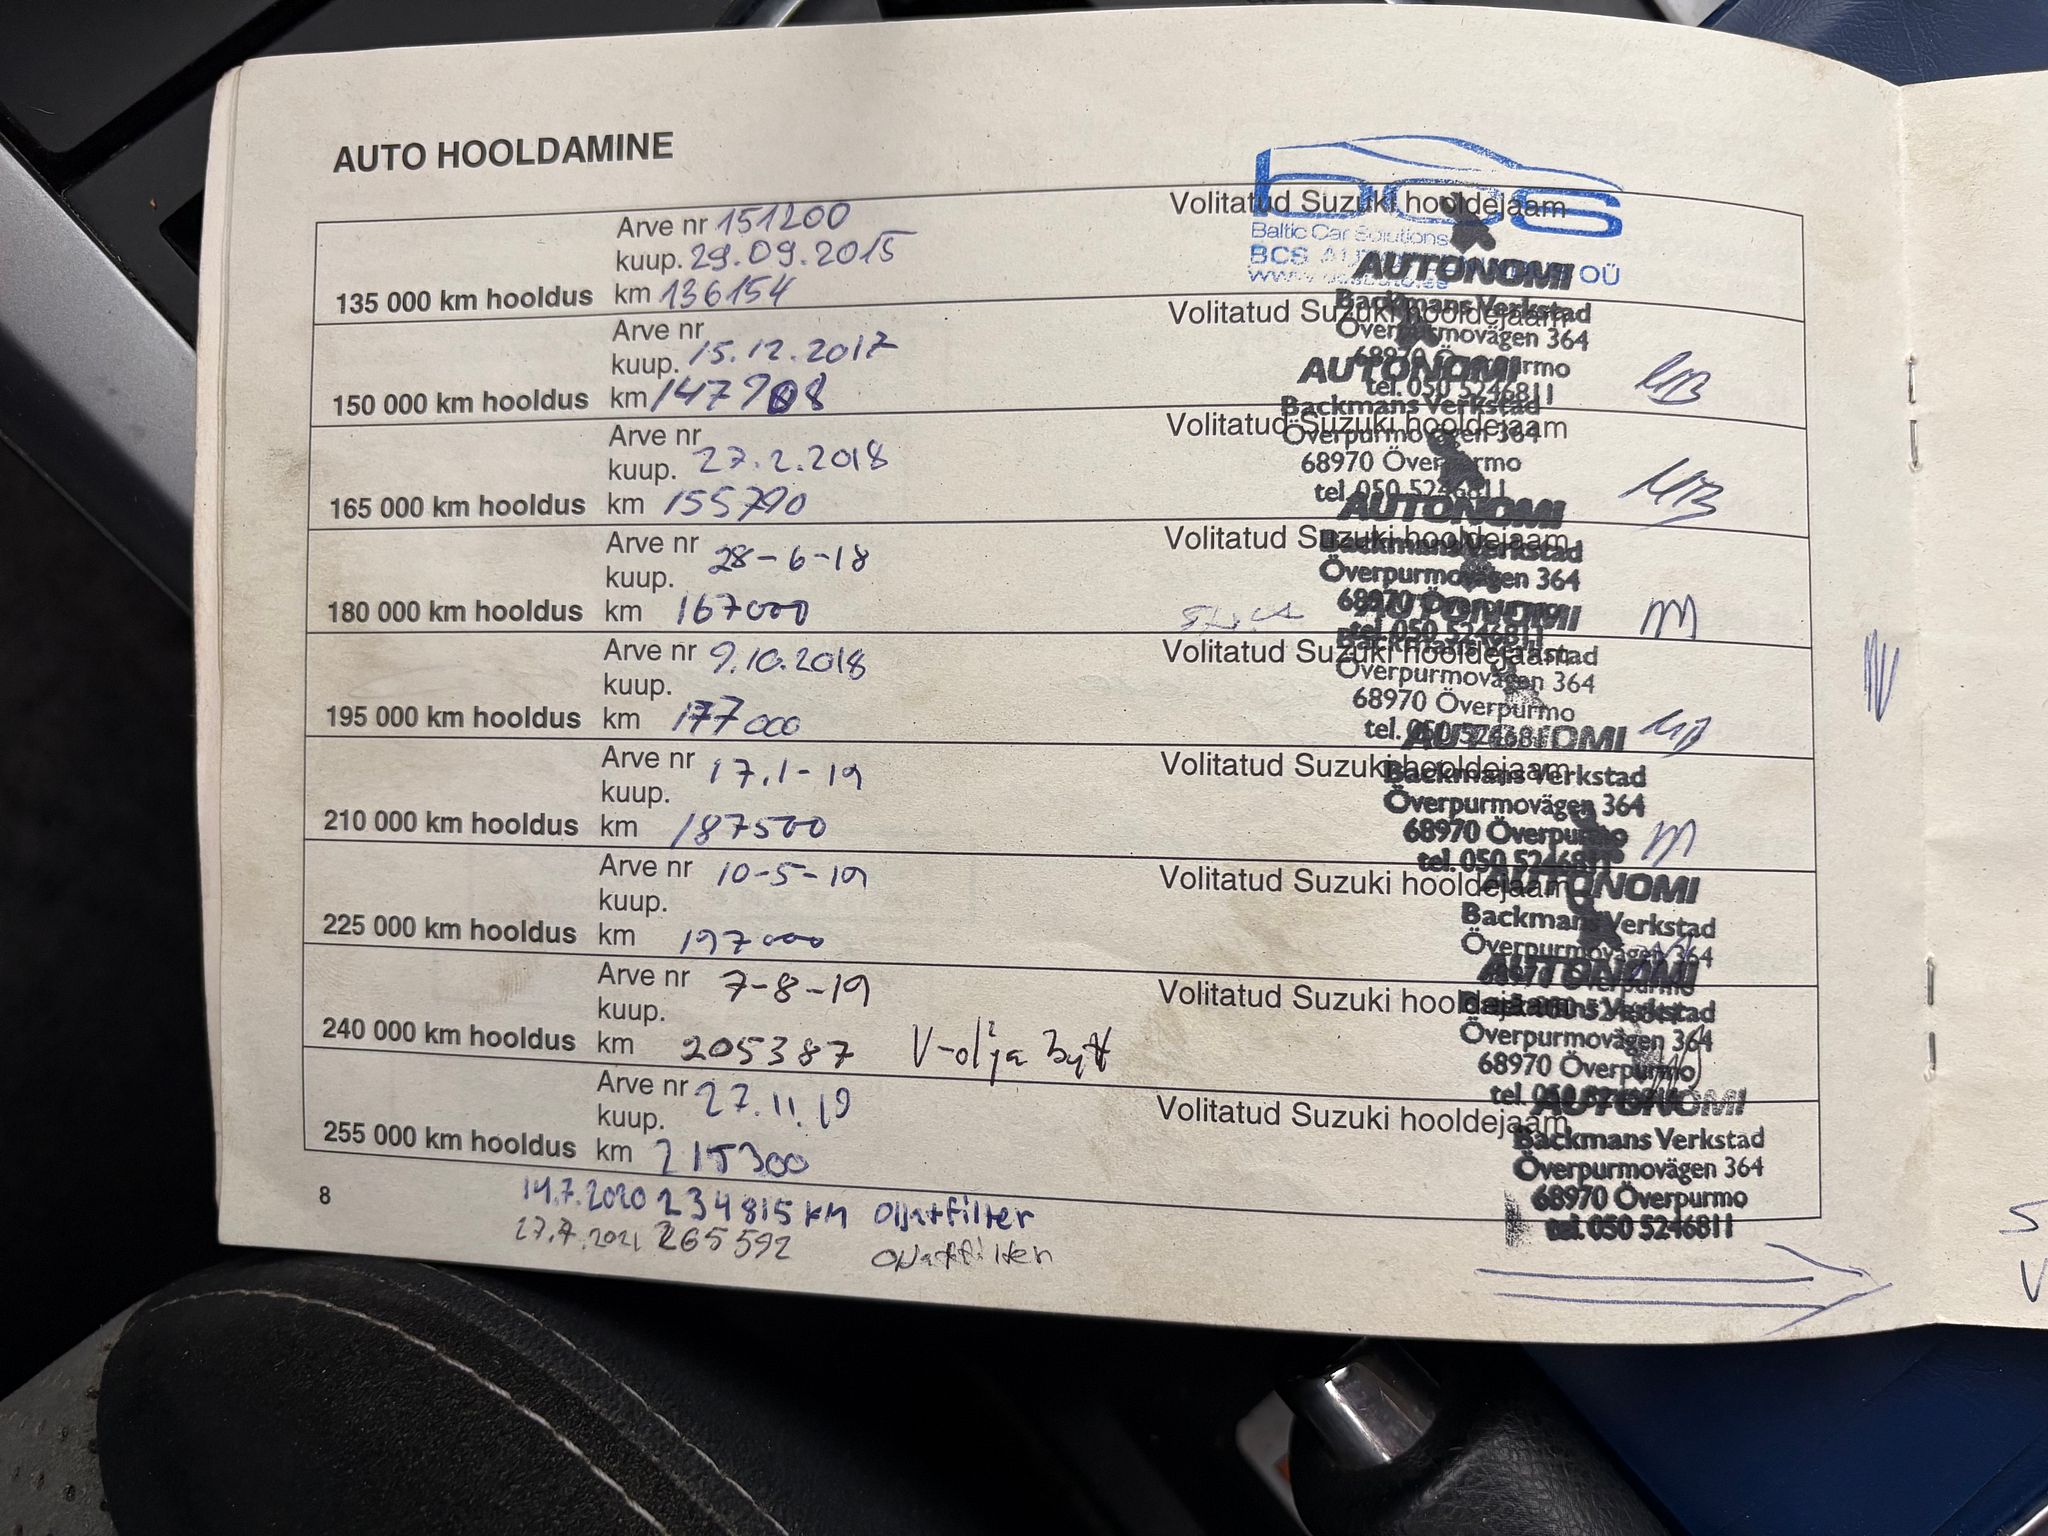 AUTO HOOLDAMINE
bcs
Baltic Car Solutions
BCS OÜ
135 000 km hooldus
Arve nr 151200
kuup. 29.09.2015
km 136154
Volitatud Suzuki hooldejaam
AUTONOMI
Backmans Verkstad
Överpurmovägen 364
68970 Överpurmo
tel. 050 5246811
150 000 km hooldus
Arve nr
kuup. 15.12.2017
km 147908
Volitatud Suzuki hooldejaam
AUTONOMI
Backmans Verkstad
Överpurmovägen 364
68970 Överpurmo
tel. 050 5246811
165 000 km hooldus
Arve nr
kuup. 27.2.2018
km 155790
Volitatud Suzuki hooldejaam
AUTONOMI
Backmans Verkstad
Överpurmovägen 364
68970 Överpurmo
tel. 050 5246811
180 000 km hooldus
Arve nr 28-6-18
kuup.
km 167000
Volitatud Suzuki hooldejaam
AUTONOMI
Backmans Verkstad
Överpurmovägen 364
68970 Överpurmo
tel. 050 5246811
195 000 km hooldus
Arve nr 9.10.2018
kuup.
km 177000
Volitatud Suzuki hooldejaam
AUTONOMI
Backmans Verkstad
Överpurmovägen 364
68970 Överpurmo
tel. 050 5246811
210 000 km hooldus
Arve nr 17.1-19
kuup.
km 187500
Volitatud Suzuki hooldejaam
AUTONOMI
Backmans Verkstad
Överpurmovägen 364
68970 Överpurmo
225 000 km hooldus
Arve nr 10-5-19
kuup.
km 197000
Volitatud Suzuki hooldejaam
AUTONOMI
Backmans Verkstad
Överpurmovägen 364
68970 Överpurmo
240 000 km hooldus
Arve nr 7-8-19
kuup.
km 205387 V-olja byt
Volitatud Suzuki hooldejaam
AUTONOMI
Backmans Verkstad
Överpurmovägen 364
68970 Överpurmo
tel. 050 5246811
255 000 km hooldus
Arve nr 27.11.19
kuup.
km 215300
Volitatud Suzuki hooldejaam
8
14.7.2020 234815 km Olja+filter
27.7.2021 265592 Olja+filter